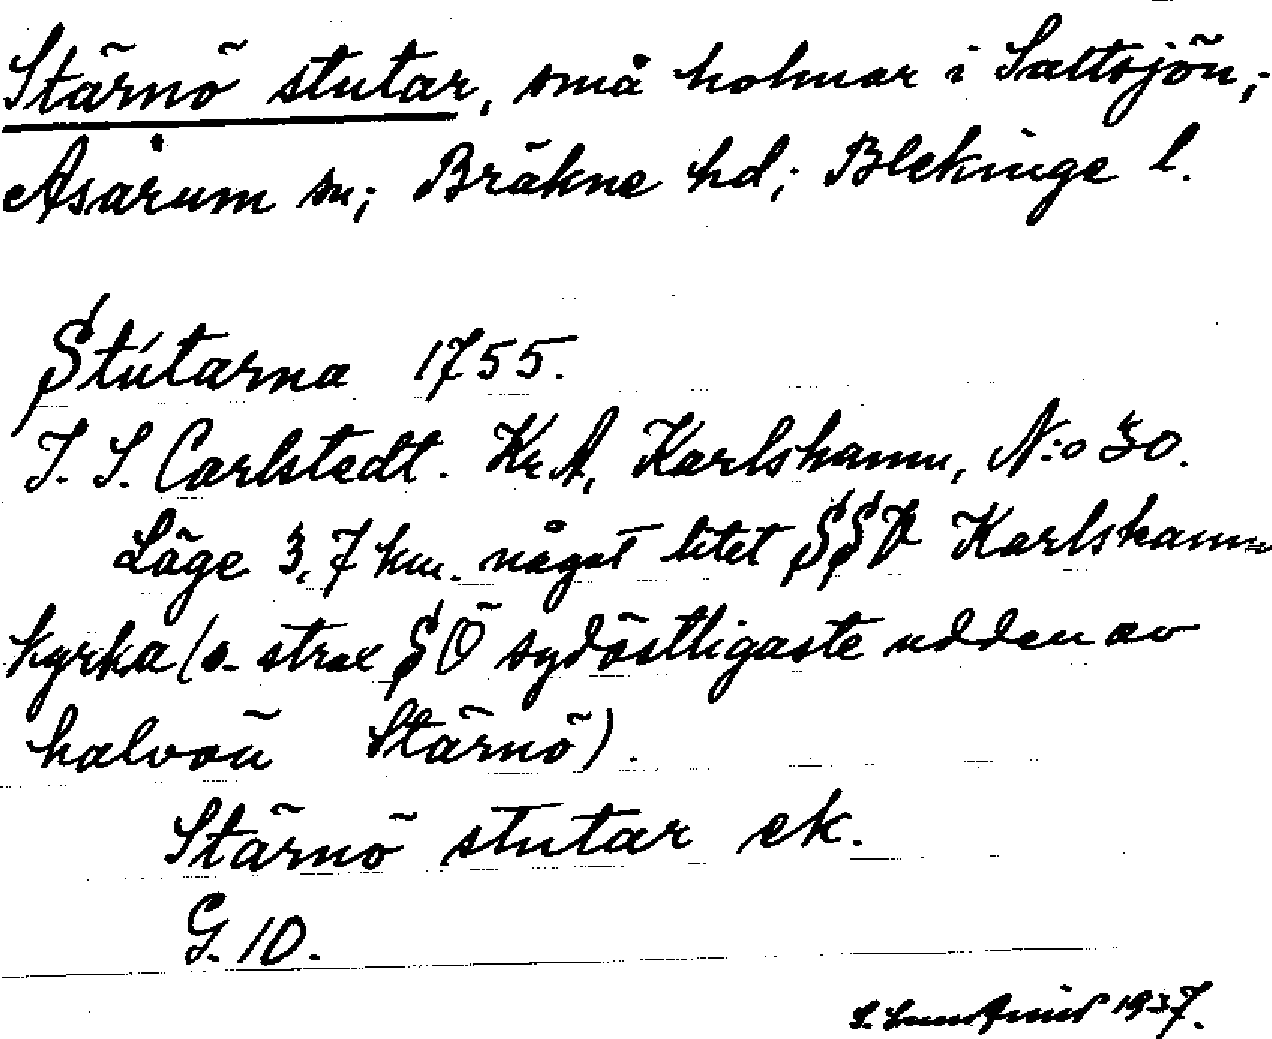 Stärnö stutar, små holmar i Saltsjön;
Asarum sn; Bräkne hd; Blekinge l.
Stútarna 1755.
J. S. Carlstedt. Kr.A, Karlshamn, N:o 30.
Läge 3,7 km. något litet SSV Karlshamns
kyrka (o. strax SÖ sydöstligaste udden av
halvön Stärnö).
Stärnö stutar ek.
G. 10.
1937.